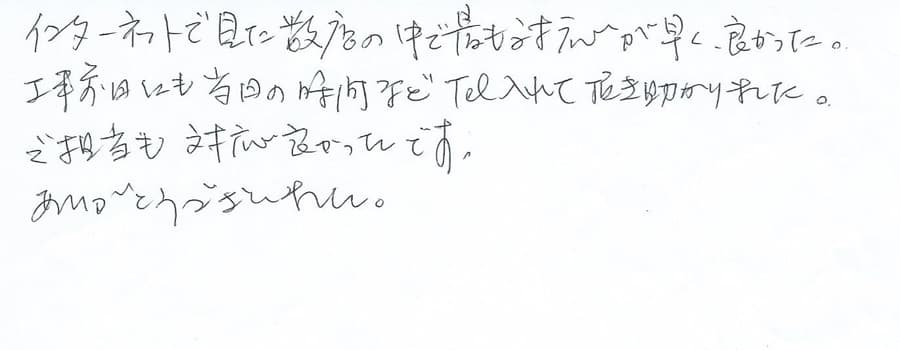 インターネットで見た数店の中で最も対応が早く、良かった。
工事前日にも当日の時間などTel入れて頂き助かりました。
ご担当も対応良かったです。
ありがとうございました。